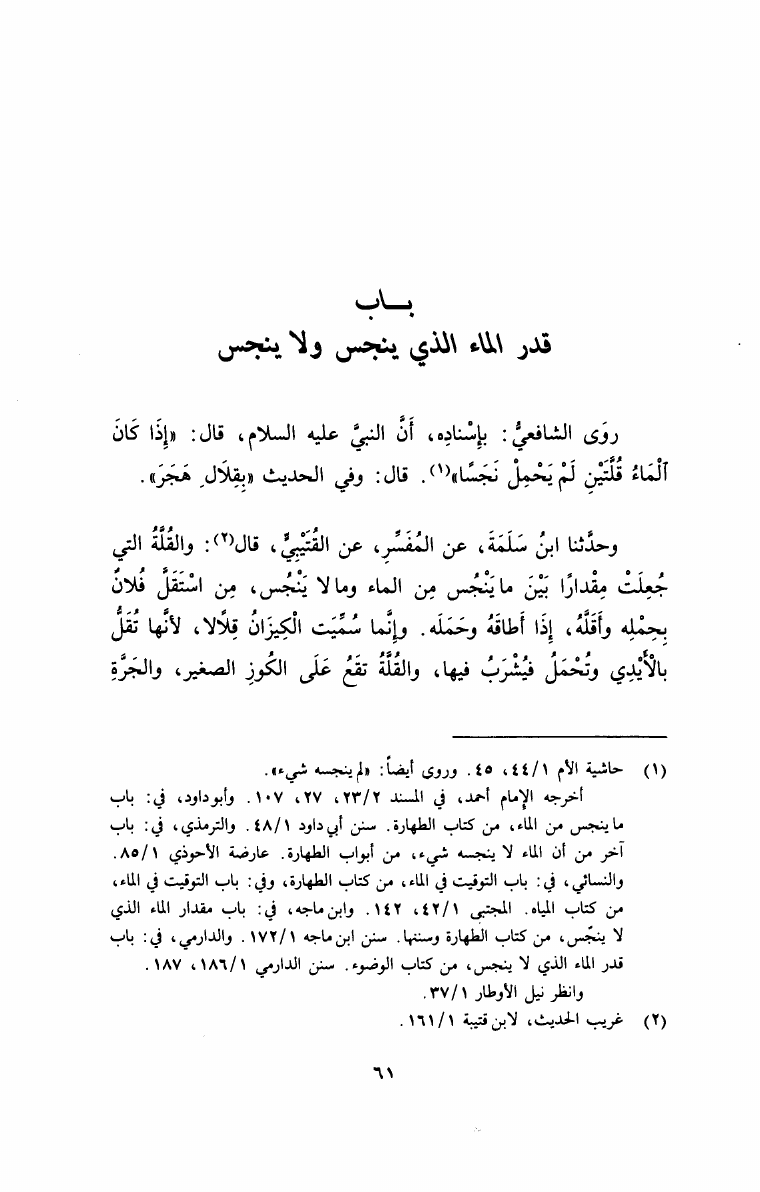 بــاب
قدر الماء الذي ينجس ولا ينجس
روَى الشافعيُّ: بإسْنادِه، أنَّ النبيَّ عليه السلام، قال: «إِذَا كَانَ
ٱلْمَاءُ قُلَّتَيْنِ لَمْ يَحْمِلْ نَجَسًا»(١). قال: وفي الحديث «بِقِلَالِ هَجَرَ».
وحدَّثنا ابنُ سَلَمَةَ، عن المُفَسِّرِ، عن القُتَيْبِيِّ، قال(٢): والقُلَّةُ التي
جُعِلَتْ مِقْدارًا بَيْنَ ما يَنْجُس مِن الماء وما لا يَنْجُس، مِن اسْتَقَلَّ فُلانٌ
بِحِمْلِه وأَقَلَّهُ، إِذَا أطاقَهُ وحَمَلَه. وإنَّما سُمِّيَت الْكِيزَانُ قِلَالا، لأنَّها تُقَلُّ
بالْأَيْدِي وتُحْمَلُ فيُشْرَبُ فيها، والقُلَّةُ تقَعُ عَلَى الكُوزِ الصغيرِ، والجَرَّةِ
(١) حاشية الأم ٤٤/١، ٤٥. وروى أيضاً: «لم ينجسه شيء».
أخرجه الإمام أحمد، في المسند ٢٣/٢، ٢٧، ١٠٧. وأبو داود، في: باب
ما ينجس من الماء، من كتاب الطهارة. سنن أبي داود ٤٨/١. والترمذي، في: باب
آخر من أن الماء لا ينجسه شيء، من أبواب الطهارة. عارضة الأحوذي ٨٥/١.
والنسائي، في: باب التوقيت في الماء، من كتاب الطهارة، وفي: باب التوقيت في الماء،
من كتاب المياه. المجتبى ٤٢/١، ١٤٢. وابن ماجه، في: باب مقدار الماء الذي
لا ينجّس، من كتاب الطهارة وسننها. سنن ابن ماجه ١٧٢/١. والدارمي، في: باب
قدر الماء الذي لا ينجس، من كتاب الوضوء. سنن الدارمي ١٨٦/١، ١٨٧.
وانظر نيل الأوطار ٣٧/١.
(٢) غريب الحديث، لابن قتيبة ١٦١/١.
٦١